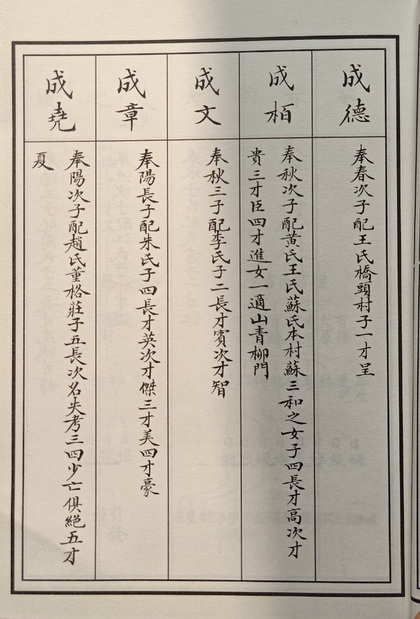 成德
奉春次子配王氏橋頭村子一才呈
成栢
奉秋次子配黃氏王氏蘇氏本村蘇三和之女子四長才高次才
貴三才臣四才進女一適山青柳門
成文
奉秋三子配李氏子二長才賓次才智
成章
奉陽長子配朱氏子四長才英次才傑三才美四才豪
成堯
奉陽次子配趙氏董格莊子五長次名失考三四少亡俱絕五才
夏